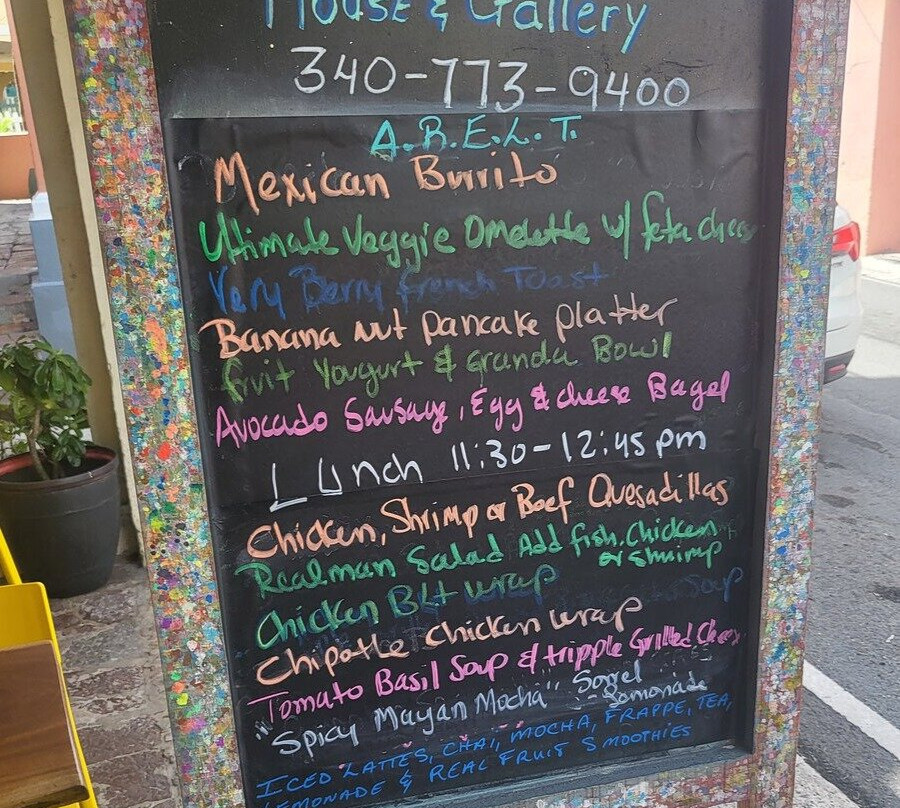 House & Gallery
340-773-9400
A.B.E.L.T.
Mexican Burrito
Ultimate Veggie Omelette w/ feta cheese
Very Berry french Toast
Banana nut pancake platter
fruit Yougurt & granda Bowl
Avocado Sausage, Egg & cheese Bagel
Lunch 11:30-12:45 pm
Chicken, Shrimp or Beef Quesadillas
Realman Salad Add fish, Chicken
or shrimp
Chicken Blt wrap
Chipotle chicken wrap
Tomato Basil Soup & tripple Grilled Cheese
"Spicy Mayan Mocha" Sorrel
Lemonade
ICED LATTES, CHAI, MOCHA, FRAPPE, TEA,
LEMONADE & REAL FRUIT SMOOTHIES